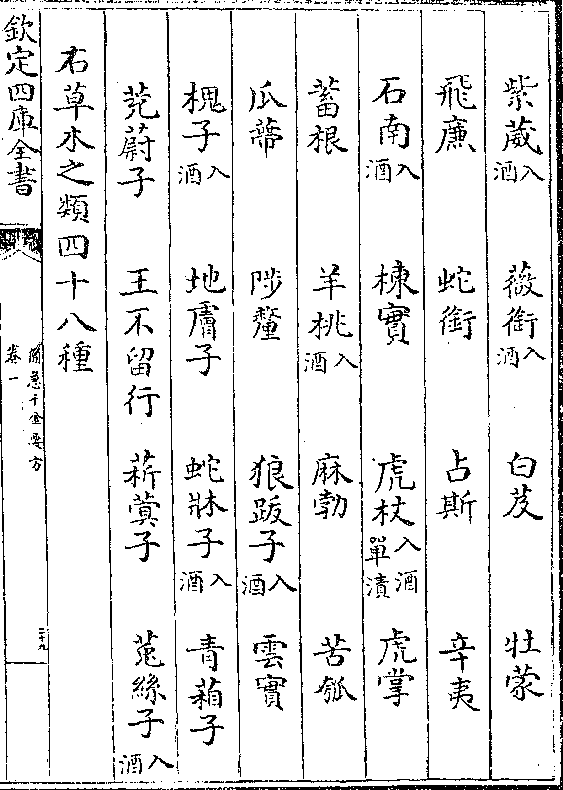 紫葳入酒 薇銜入酒 白芨 牡蒙
飛廉 蛇銜 占斯 辛夷
石南入酒 楝實 虎杖入酒單漬 虎掌
蓄根 羊桃入酒 麻勃 苦瓠
瓜蔕 陟釐 狼跋子入酒 雲實
槐子入酒 地膚子 蛇牀子入酒 青葙子
茺蔚子 王不留行 菥蓂子 菟絲子入酒
右草木之類四十八種
欽定四庫全書
備急千金要方
卷一
二十九